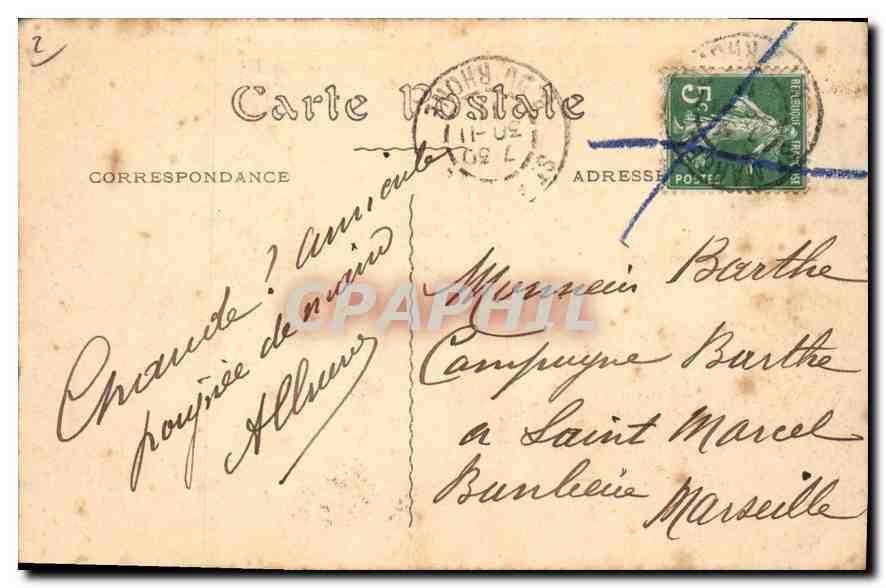 2
Carte Postale
CORRESPONDANCE
ADRESSE
RHONE
7 30
30-11
5c
REPUBLIQUE FRANÇAISE
POSTES
Chaude? amicale
poignée de main
Monsieur Barthe
Campagne Barthe
a Saint Marcel
Banlieue
Marseille
CPAPHIL